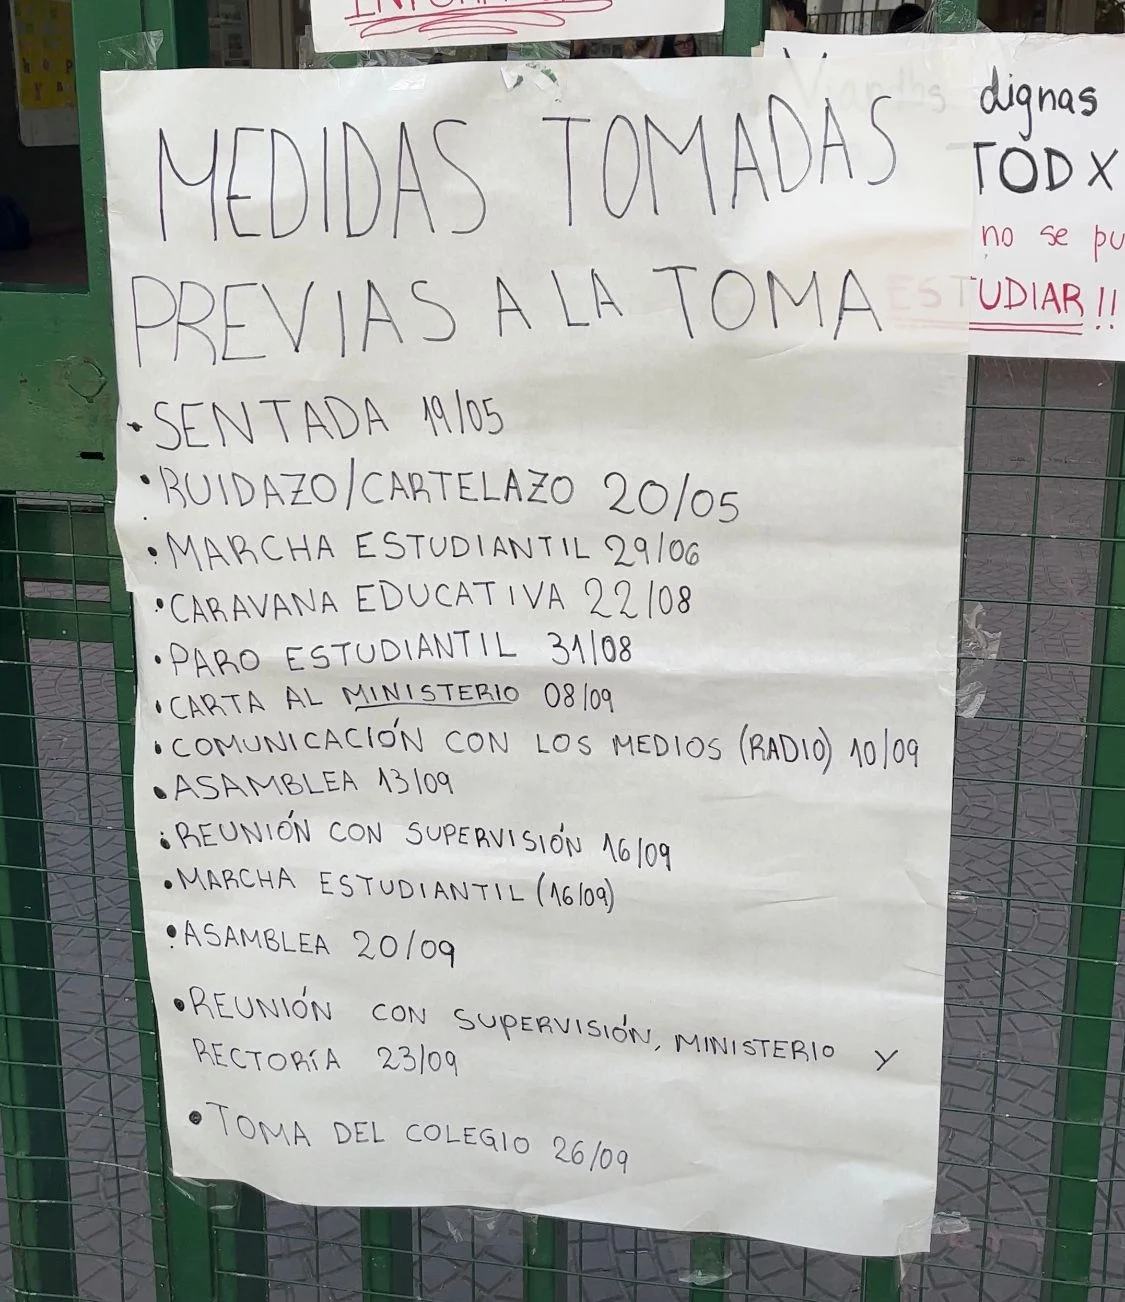 MEDIDAS TOMADAS
PREVIAS A LA TOMA
• SENTADA 19/05
• RUIDAZO/CARTELAZO 20/05
• MARCHA ESTUDIANTIL 29/06
• CARAVANA EDUCATIVA 22/08
• PARO ESTUDIANTIL 31/08
• CARTA AL MINISTERIO 08/09
• COMUNICACIÓN CON LOS MEDIOS (RADIO) 10/09
• ASAMBLEA 13/09
• REUNIÓN CON SUPERVISIÓN 16/09
• MARCHA ESTUDIANTIL (16/09)
• ASAMBLEA 20/09
• REUNIÓN CON SUPERVISIÓN, MINISTERIO Y
RECTORÍA 23/09
• TOMA DEL COLEGIO 26/09
dignas
TODX
no se pu
ESTUDIAR!!